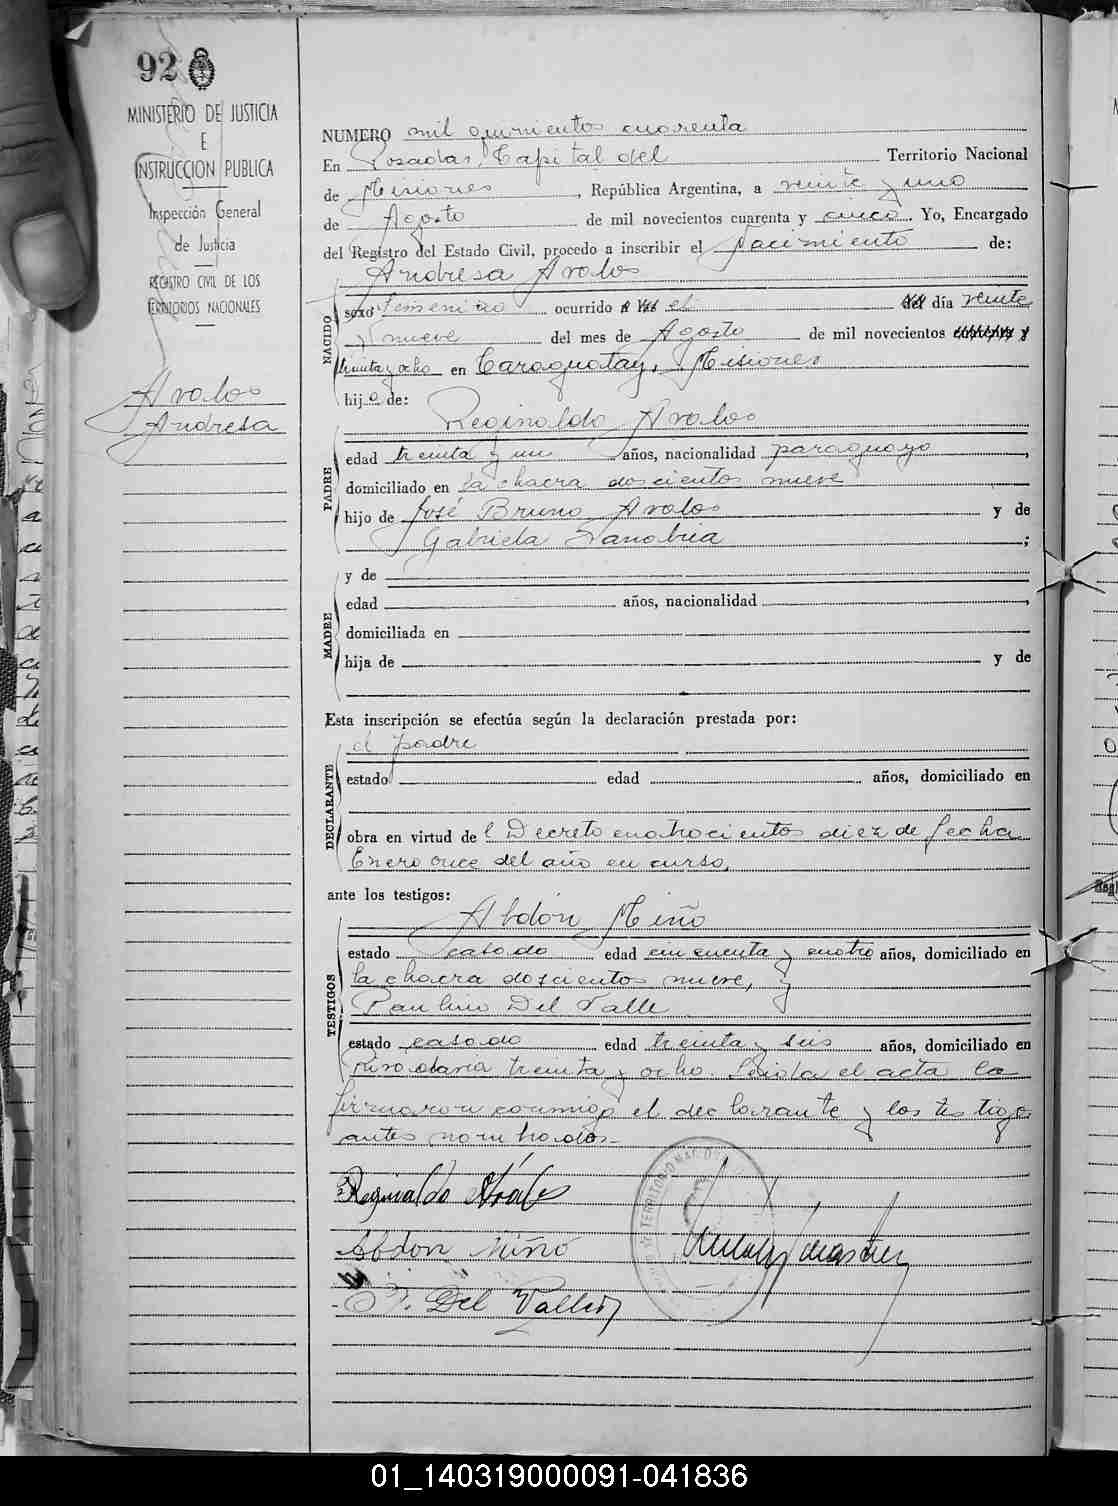 92
MINISTERIO DE JUSTICIA
E
INSTRUCCION PUBLICA
Inspección General
de Justicia
REGISTRO CIVIL DE LOS
TERRITORIOS NACIONALES
Avalos
Andresa
NUMERO mil quinientos cuarenta
En Posadas, Capital del Territorio Nacional
de Misiones, República Argentina, a veinte y uno
de Agosto de mil novecientos cuarenta y cinco. Yo, Encargado
del Registro del Estado Civil, procedo a inscribir el nacimiento de:
Andresa Avalos
NACIDO
sexo femenino ocurrido el día veinte
y nueve del mes de Agosto de mil novecientos
treinta y ocho en Caraguatay, Misiones
hija de:
Reginaldo Avalos
PADRE
edad treinta y un años, nacionalidad paraguayo,
domiciliado en la chacra doscientos nueve
hijo de José Bruno Avalos y de
Gabriela Sanabria;
y de
MADRE
edad años, nacionalidad,
domiciliada en
hija de y de
Esta inscripción se efectúa según la declaración prestada por:
el padre
DECLARANTE
estado edad años, domiciliado en
obra en virtud del Decreto cuatrocientos diez de fecha
Enero once del año en curso,
ante los testigos:
Abdón Miño
TESTIGOS
estado casado edad cincuenta y cuatro años, domiciliado en
la chacra doscientos nueve, y
Paulino Del Valle
estado casado edad treinta y seis años, domiciliado en
Rivadavia treinta y ocho. Leída el acta la
firmaron conmigo el declarante y los testigos
antes nombrados.-
Reginaldo Avalos
Abdon Miño
P. Del Valle
TERRITORIO NACIONAL
01_140319000091-041836